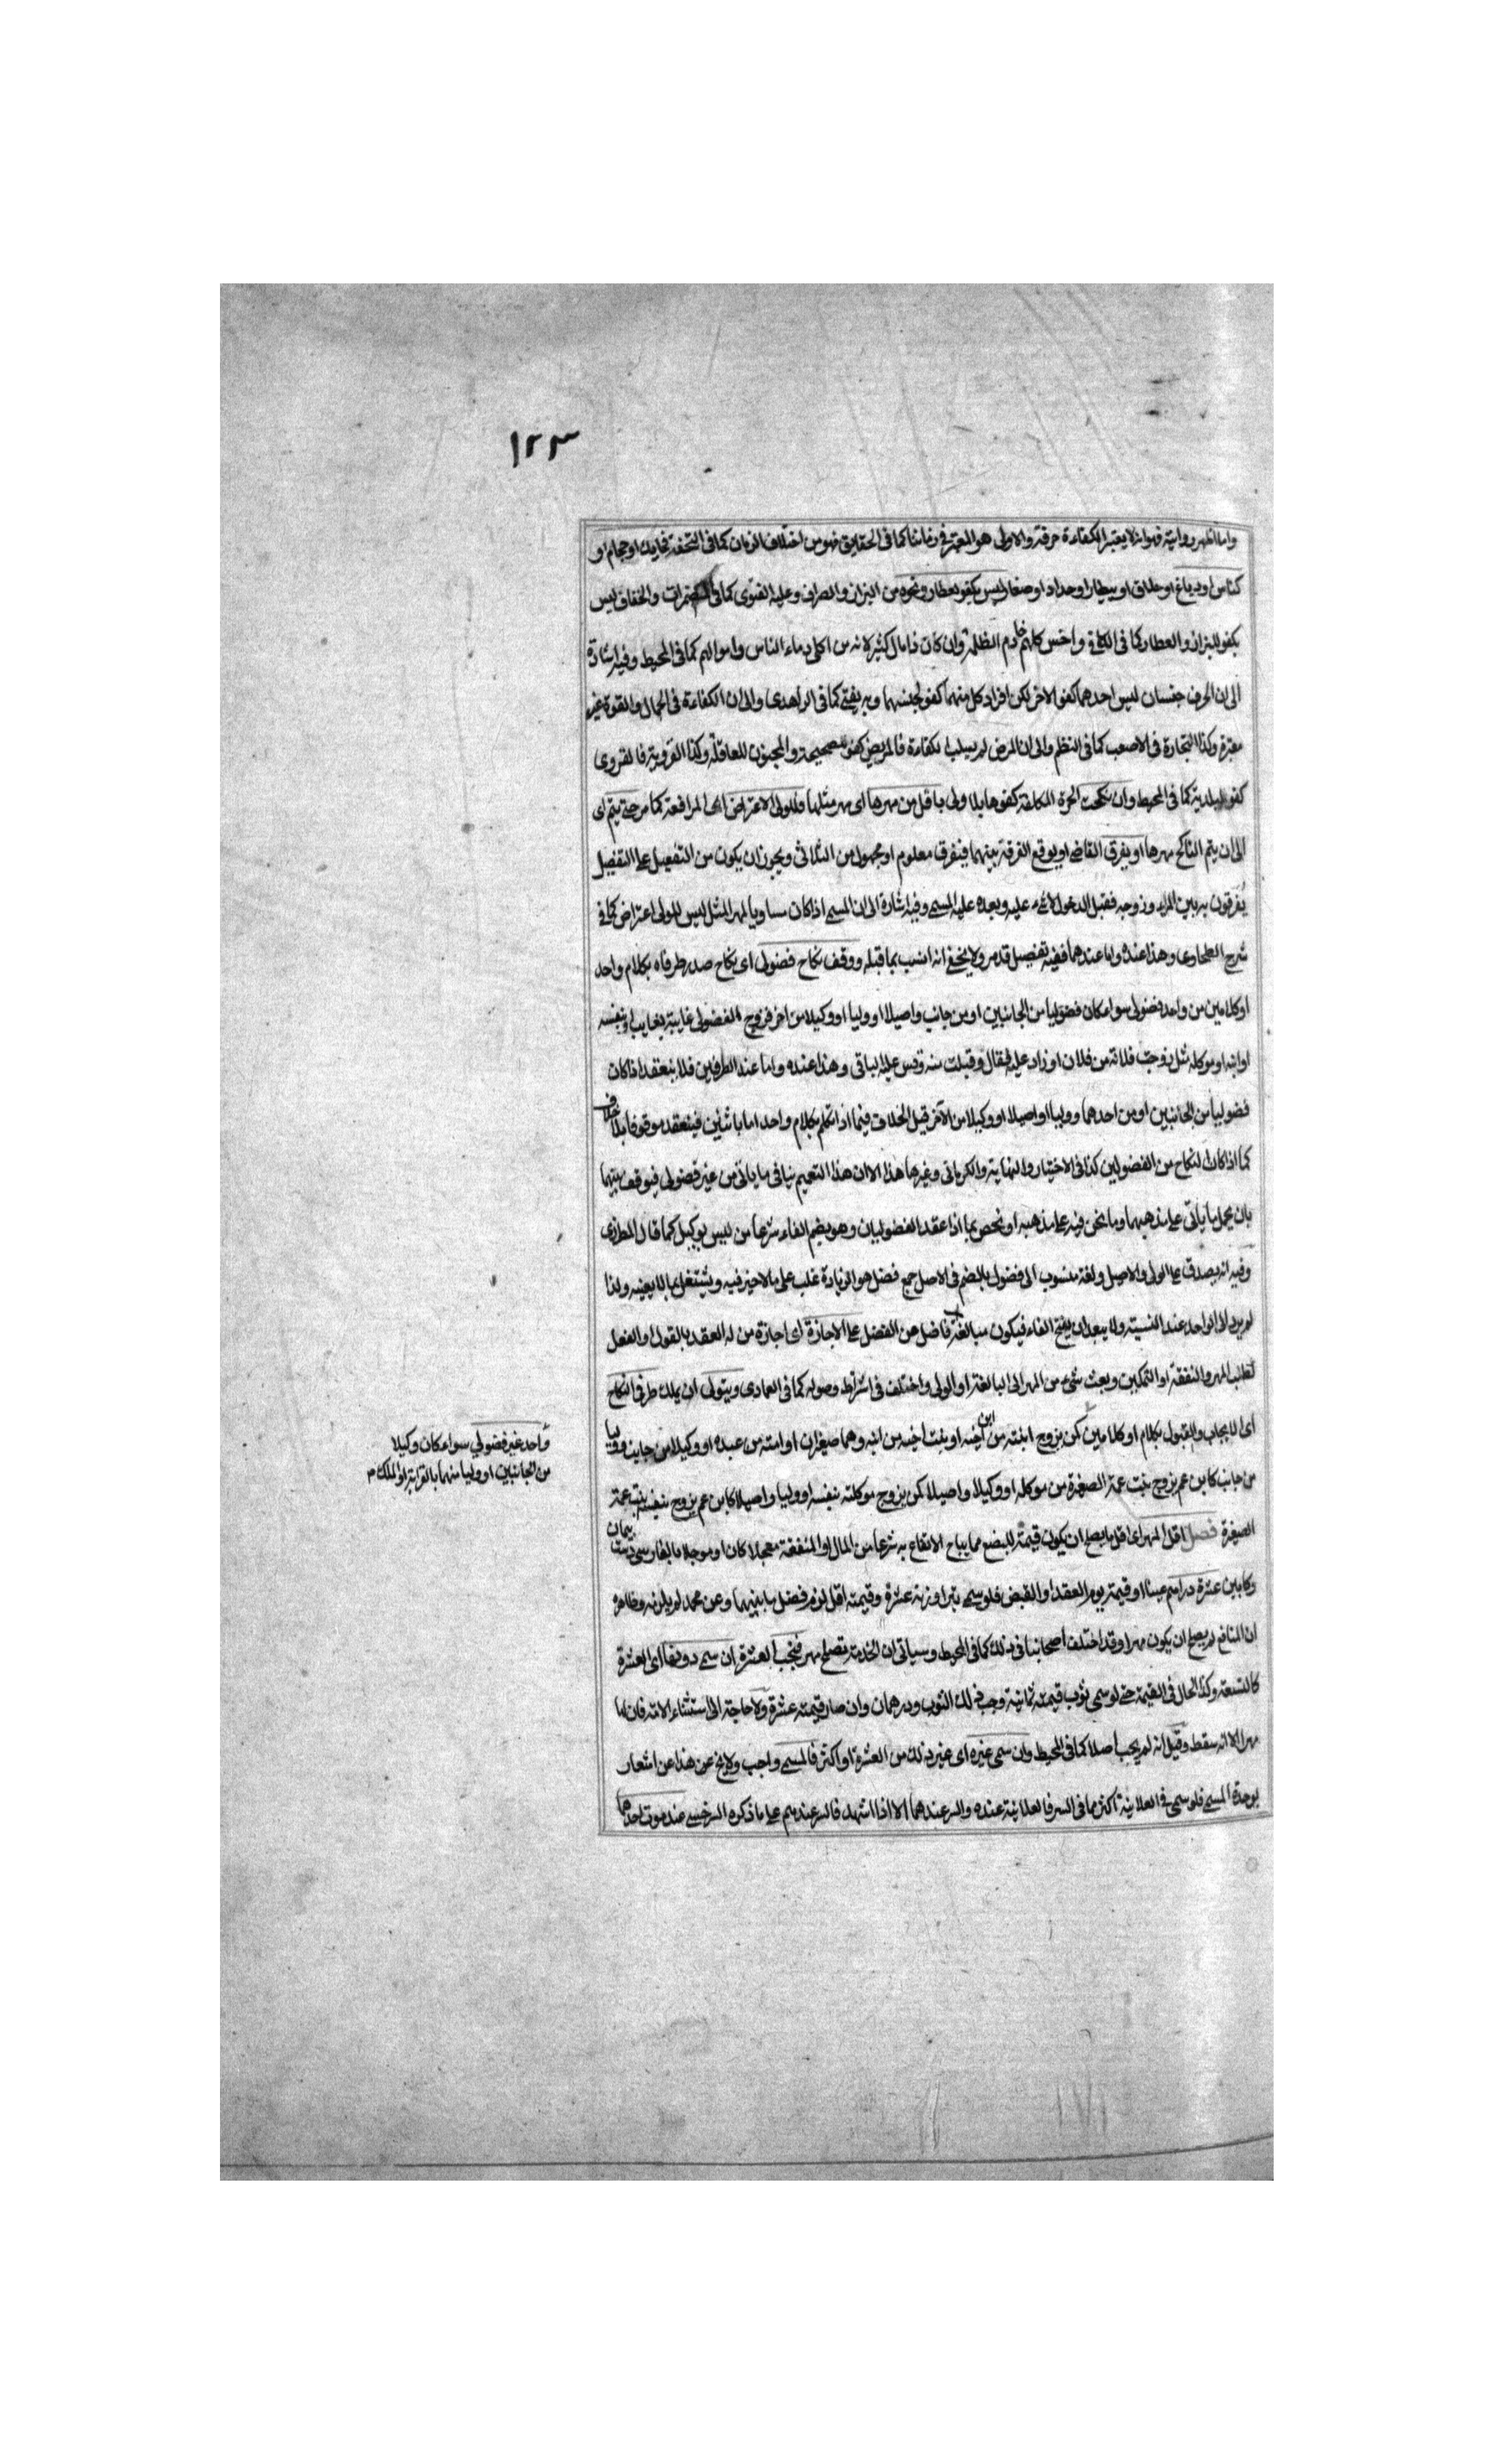 ١٢٣
واما اظهر رواية فهو انه لا يعتبر الكفاءة حرفة والاولى هو المعتبر في زماننا كما في الحقايق فهو من اختلاف الزمان كما في التحفة فحايك او حجام او
كناس او دباغ او حلاق او بيطار او حداد او صفار ليس بكفو لعطار ونحوه من البزاز والصراف وعليه الفتوى كما في المضمرات والخفاف ليس
بكفو للبزاز والعطار كما في الكافي واخس كلهم خادم الظلمة وان كان ذا مال كثير لانه من اكلي دماء الناس واموالهم كما في المحيط وفيه اشارة
الى ان الحرف جنسان ليس احدهما كفو الاخر لكن افراد كل منهما كفو لجنسها وبه يفتى كما في الزاهدي والى ان الكفاءة في الجمال والقوة غير
معتبرة وكذا التجارة في الاصعب كما في النظم والى ان المرض لم يسلب الكفاءة فالمريض كفو للصحيحة والمجنون للعاقلة وكذا القروية فالقروى
كفو للبلدية كما في المحيط وان نكحت الحرة المكلفة كفوها بلا ولى باقل من مهرها اى مهر مثلها فللولى الاعتراض اى المرافعة كما مر حتى يتم اى
الى ان يتم الناكح مهرها او يفرق القاضى او يوقع الفرقة بينهما فيفرق معلوم او مجهول من الثلاثى ويجوز ان يكون من التفعيل على التفصيل
يفرقون به بين المرء وزوجه فقبل الدخول لا شئ عليه وبعده عليه المسمى وفيه اشارة الى ان المسمى اذا كان مساويا لمهر المثل ليس للمولى اعتراض كما في
شرح الطحاوى وهذا عنده واما عندهما ففيه تفصيل قد مر ولا يخفى انه انسب بما قبله ووقف نكاح فضولى اى نكاح صدر طرفاه بكلام واحد
او كلامين من واحد فضولى سواء كان فضوليا من الجانبين او من جانب واصيلا او وليا او وكيلا من اخر فزوج الفضولى غايبة بغايب او بنفسه
او ابنه او موكله مثل زوجت فلانة من فلان او زاد عليه فقال وقبلت منه وقس عليه الباقى وهذا عنده واما عند الطرفين فلا ينعقد اذا كان
فضوليا من الجانبين او من احدهما ووليا او اصيلا او وكيلا من الآخر قيل الخلاف فيما اذا تكلم بكلام واحد اما باثنين فينعقد موقوفا بلا خلاف
كما اذا كان النكاح من الفضولين كذا في الاختيار والنهاية والكرمانى وغيرها هذا الا ان هذا التعميم ينافى ما ياتى من غير فضولى فيوقف بينهما
بان يحمل ما ياتى على مذهبهما وما نحن فيه على مذهبه او نخص بما اذا عقد الفضوليان وهو بضم الفاء شرعا من ليس بوكيل كما قال المطرزى
وفيه انه يصدق على الولى والاصيل ولغة منسوب الى فضول بالضم في الاصل جمع فضل هو الزيادة غلب على ما لا خير فيه ويشتغل بما لا يعنيه ولذا
لم يرد الى الواحد عند النسبة ولا يبعد ان يفتح الفاء فيكون مبالغة فاضل من الفضل على الاجازة اى اجازة من له العقد بالقول او الفعل
كطلب المهر والنفقة او التمكين وبعث شئ من المهر الى البالغة او الولى واختلف في اشراط وصوله كما في العمادى ويتولى اى يملك طرفى النكاح
اى الايجاب والقبول بكلام او كلامين كمن يزوج ابنته من ابن اخيه او بنت اخيه من ابنه وهما صغيران او امته من عبده او وكيلا من جانب ووليا
من جانب كابن عم يزوج بنت عمه الصغيرة من موكله او وكيلا واصيلا كمن يزوج موكلته بنفسه او وليا واصيلا كابن عم يزوج بنفسه بنت عمه
الصغيرة فصل اقل المهر اى اقل ما يصلح ان يكون قيمة للبضع مما يباح الانتفاع به شرعا من المال او المنفعة معجلا كان او موجلا بالفارسى دست پيمان
وكابين عشرة دراهم عينا او قيمة يوم العقد او القبض فلو سمى تبرا وزنه عشرة وقيمته اقل لزم فضل ما بينهما وعن محمد لم يلزمه وظاهره
ان المنافع لم يصلح ان يكون مهرا وقد اختلف اصحابنا في ذلك كما في المحيط وسياتى ان الخدمة تصلح مهرا فتجب العشرة ان سمى دونها اى العشرة
كالتسعة وكذا الحال في القيمة حتى لو سمى ثوب قيمته ثمانية وجب ذلك الثوب ودرهمان وان صار قيمته عشرة ولا حاجة الى استثناء الامة فان لها
مهرا الا انه سقط وقيل انه لم يجب اصلا كما في المحيط وان سمى غيره اى غير ذلك من العشرة او اكثر فالمسمى واجب ولا يخ عن هذا عن اشعار
بوحدة المسمى فلو سمى في العلانية اكثر مما في السر فالعلانية عنده والسر عندهما الا اذا اشهد فالسر عندهم على ما ذكره السرخسى عند موت احدهما
واحد غير فضولي سواء كان وكيلا
من الجانبين او وليا منهما بالقرابة او الملك م